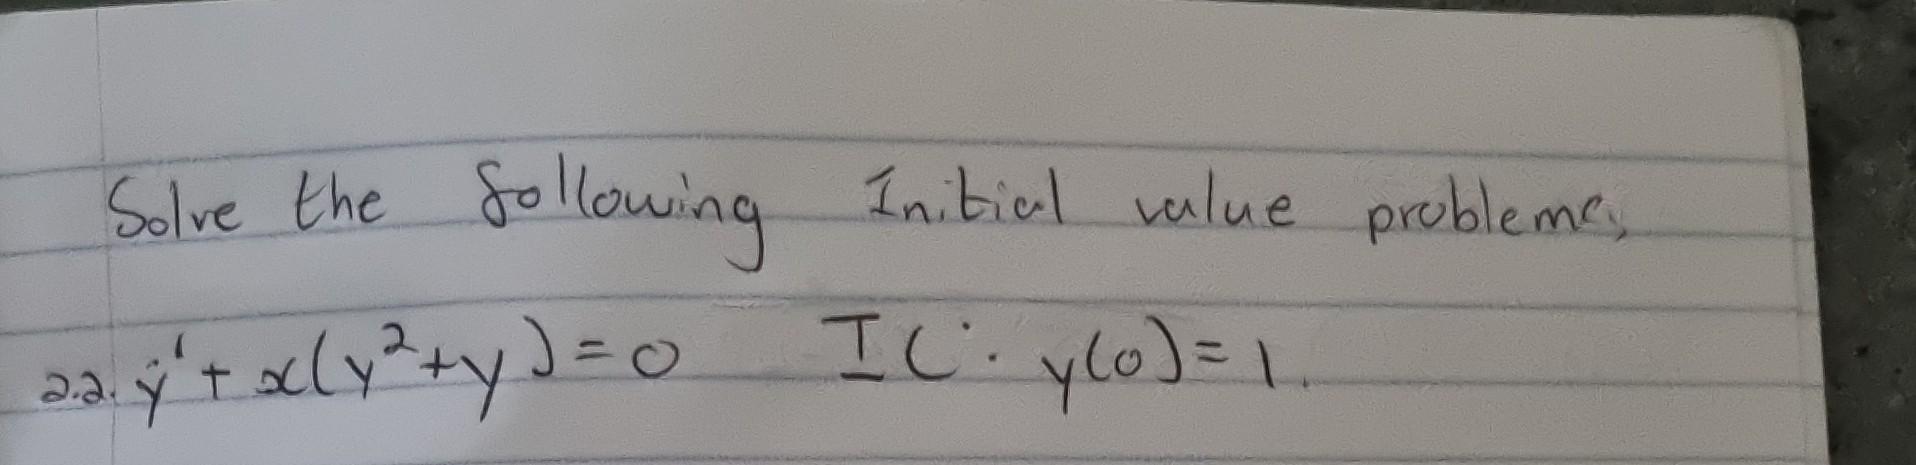 Solve the following Initial value problems,
2.2. y' + x(y²+y) = 0 IC: y(0) = 1.